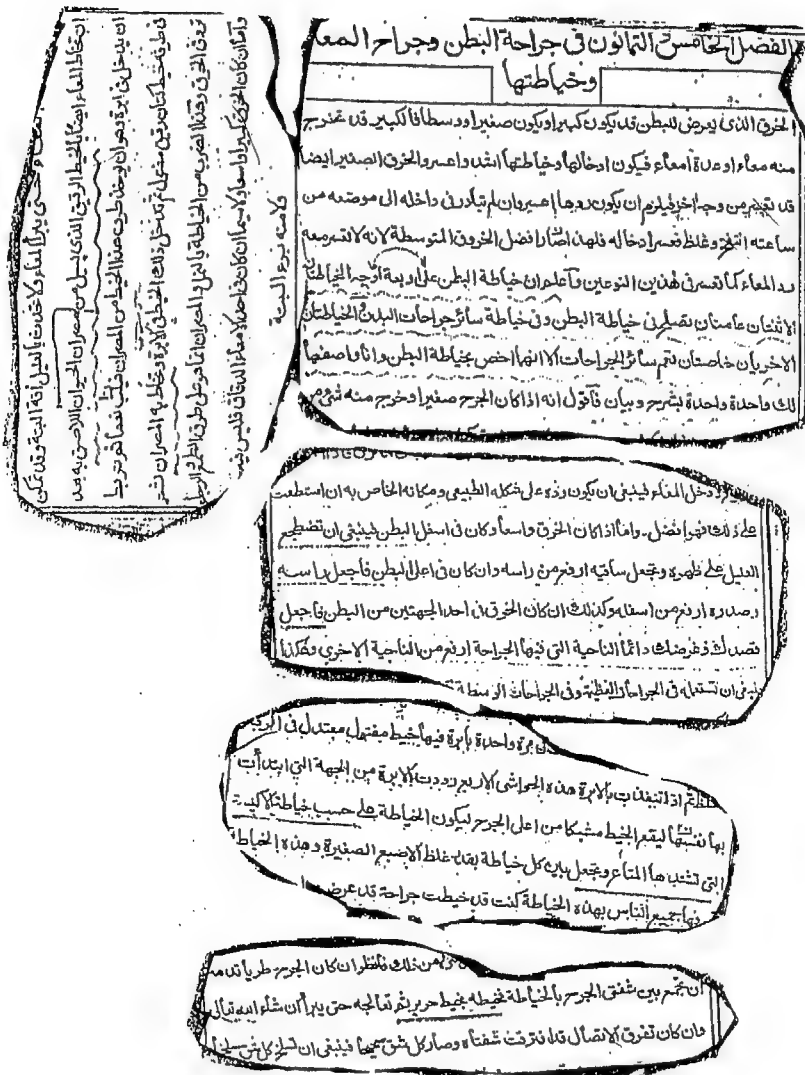 الفصل الخامس الثمانون فى جراحة البطن وجراح المعا
وخياطتها
الخرق الذى يعرض للبطن قد يكون كبيرا ويكون صغيرا ووسطا فالكبير قد تخرج
منه معاء او عدة امعاء فيكون ادخالها وخياطتها اشد واعسر والخرق الصغير ايضا
قد تعسر من وجه اخر فيلزم ان يكون ردها اعسر وان لم تبادر فى داخله الى موضعه من
ساعته انتفخ وغلظ فعسر ادخاله فلهذا صار افضل الخروق المتوسطة لانه لا تعسر معه
رد المعاء كما تعسر فى هذين النوعين وآعلم ان خياطة البطن على اربعة أوجه الخياطتان
الاثنتان عامتان تصلح فى خياطة البطن وفى خياطة سائر جراحات البدن والخياطتان
الاخريان خاصتان تعم سائر الجراحات الا انها اخص بخياطة البطن وانا واصفها
لك واحدة واحدة بشرح وبيان فآقول انه اذا كان الجرح صغيرا وخرج منه شئ من
دخل المعاء فينبغى ان يكون رده على شكله الطبيعى ومكانه الخاص به ان استطعت
على ذلك فهو افضل. واما اذا كان الخرق واسعا وكان فى اسفل البطن فينبغى ان تضطجع
العليل على ظهره وتجعل ساقيه ارفع من راسه وان كان فى اعلى البطن فاجعل راسه
وصدره ارفع من اسفله وكذلك ان كان الخرق فى احد الجهتين من البطن فاجعل
قصدك وغرضك دائما الناحية التى فيها الجراحة ارفع من الناحية الاخرى وهكذا
ينبغى ان تستعمله فى الجراحات العظيمة وفى الجراحات الوسطة
مرة واحدة بابرة فيها خيط مفتول معتدل فى الرقة
ثم اذا تنفذت بالابرة هذه الحواشى الاربع رددت الابرة من الجهة التى ابتدأت
بها نفسها ليقع الخيط مشبكا من اعلى الجرح ليكون الخياطة على حسب خياطة الاكسية
التى تشتد بها المتاع وتجعل بين كل خياطة بقدر غلظ الاصبع الصغيرة وهذه الخياطة
جميع الناس بهذه الخياطة كنت قد خيطت جراحة قد عرضت
من ذلك فانظر ان كان الجرح طريا بدمه
ان تجمع بين شفتى الجرح بالخياطة تخيطه بخيط حرير ثم تعالجه حتى يبرأ ان شاء الله تعالى
وان كان تفرق الاتصال قد افترقت شفتاه وصار كل شق صحيحا فينبغى ان تسلخ كل شق
واما ان كان الخرق كبيرا واسعا ولا سيما ان كان فى احد الامعاء الدقاق فليس فيه
ولا منه برء البتة
تروى الخرق وهذا الضرب من الخياطة بالنمل والمصران انما هو على طريق الطمع والرجا
فى طرفه خيط كتان رقيق مفتول ثم تدخل ذلك الخيط فى الابرة وتخاط به المصران ثم
ان يدخل فى ابرة وهو ان يوخذ طرف هذا الخيط من المصران فيربط
ان تخاط المعاء ايضا بالخيط الرقيق الذى يسل من مصران الحيوان اللاصق به بعد